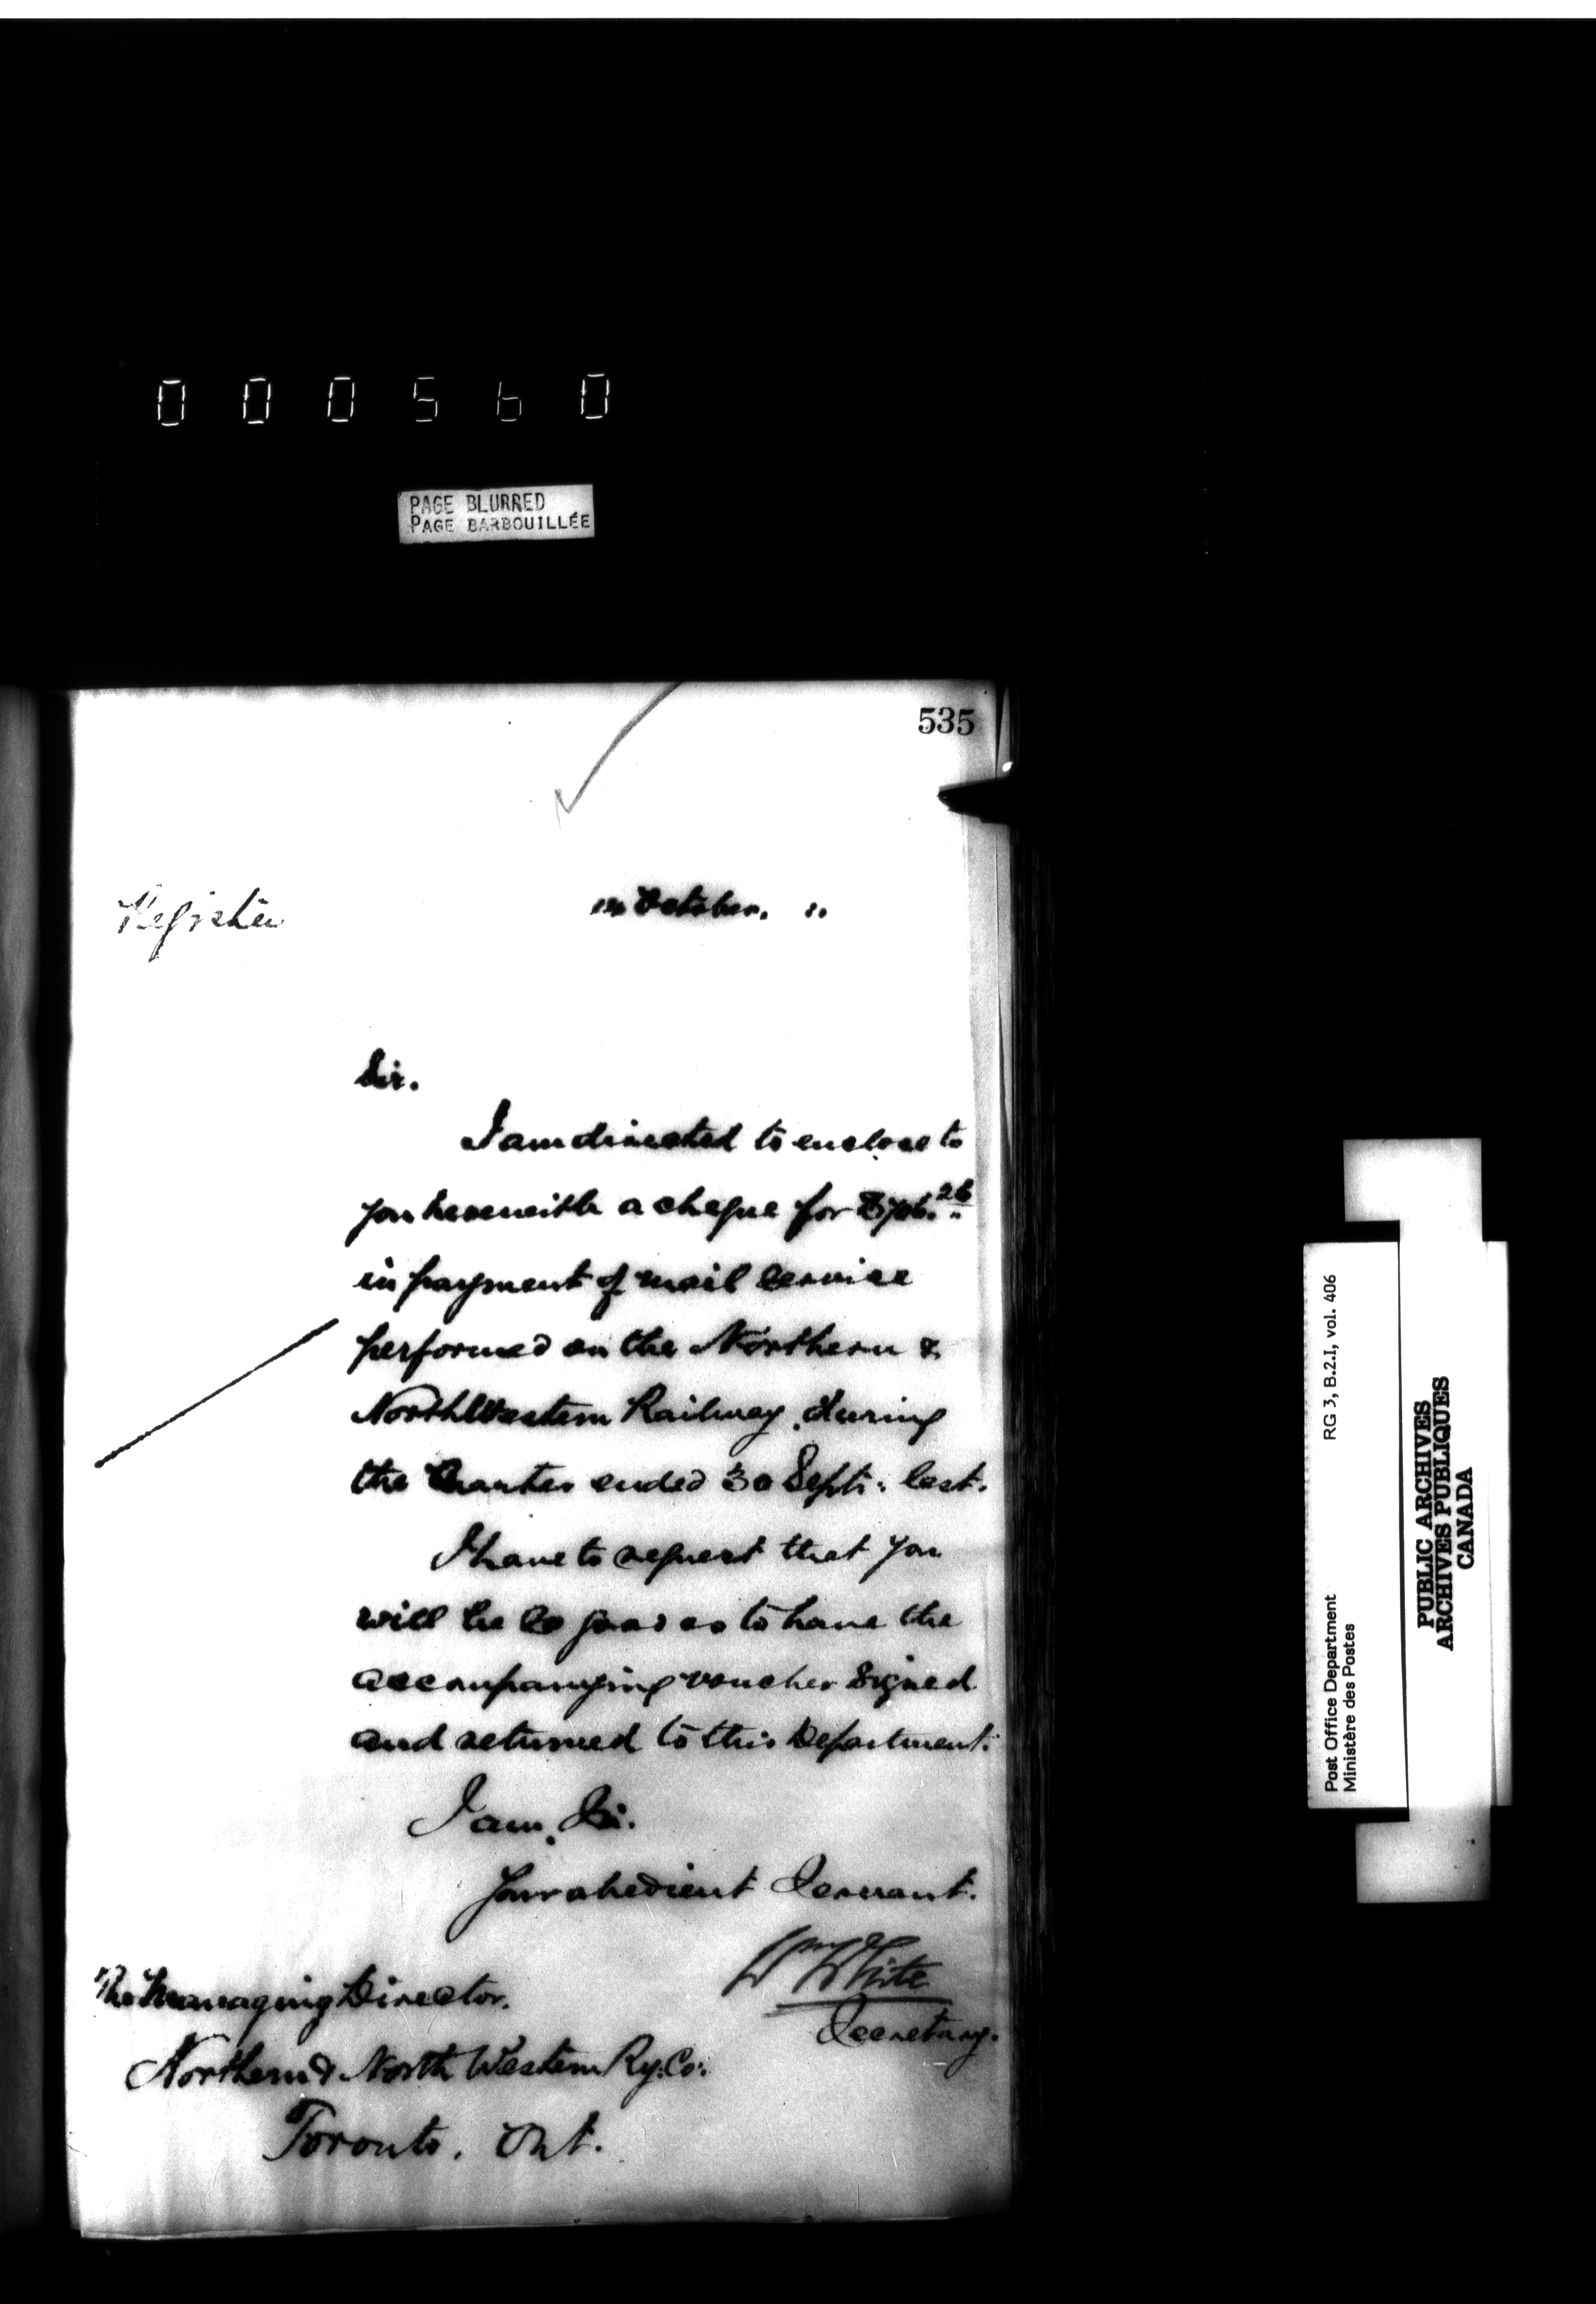 000560
PAGE BLURRED
PAGE BARBOUILLÉE
535
Register
October.
Sir.
I am directed to enclose to
you herewith a cheque for
in payment of mail service
performed on the Northern &
North Western Railway, during
the Quarter ended 30 Septr: last.
I have to request that you
will be so good as to have the
accompanying voucher signed
and returned to this Department.
I am, Sir.
Your obedient Servant.
Wm White
Secretary.
The Managing Director.
Northern & North Western Ry: Co:
Toronto. Ont.
Post Office Department RG 3, B.2.I, vol. 406
Ministère des Postes
PUBLIC ARCHIVES
ARCHIVES PUBLIQUES
CANADA